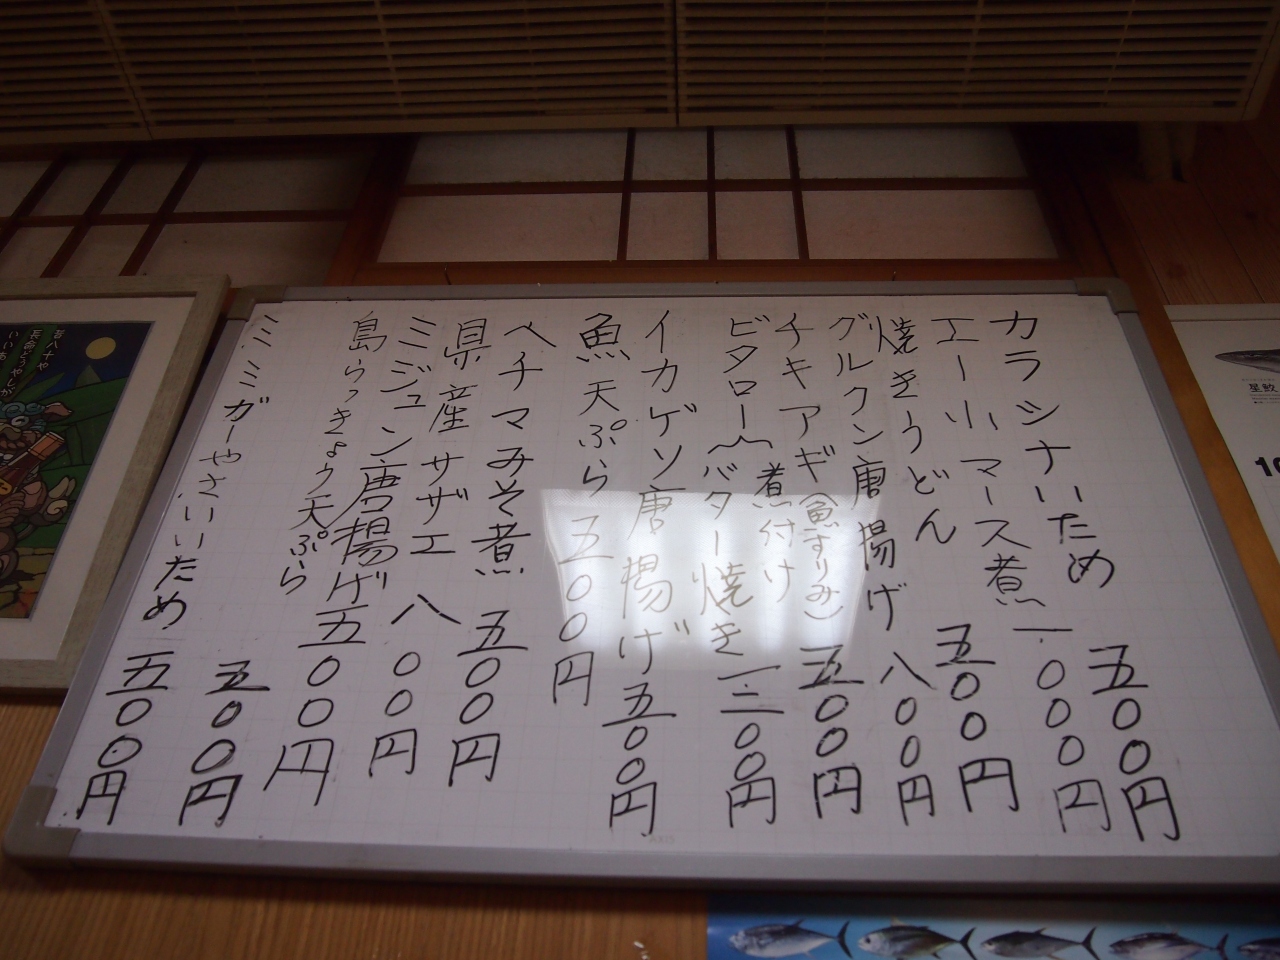 カラシナいため 五〇〇円
エー小マース煮 一〇〇〇円
焼きうどん 五〇〇円
グルクン唐揚げ 八〇〇円
チキアギ(魚すりみ) 五〇〇円
ビタロー{煮付け バター焼き 一二〇〇円
イカゲソ唐揚げ 五〇〇円
魚天ぷら 五〇〇円
ヘチマみそ煮 五〇〇円
県産サザエ 八〇〇円
ミジュン唐揚げ 五〇〇円
島らっきょう天ぷら 五〇〇円
ミミガーやさいいため 五〇〇円